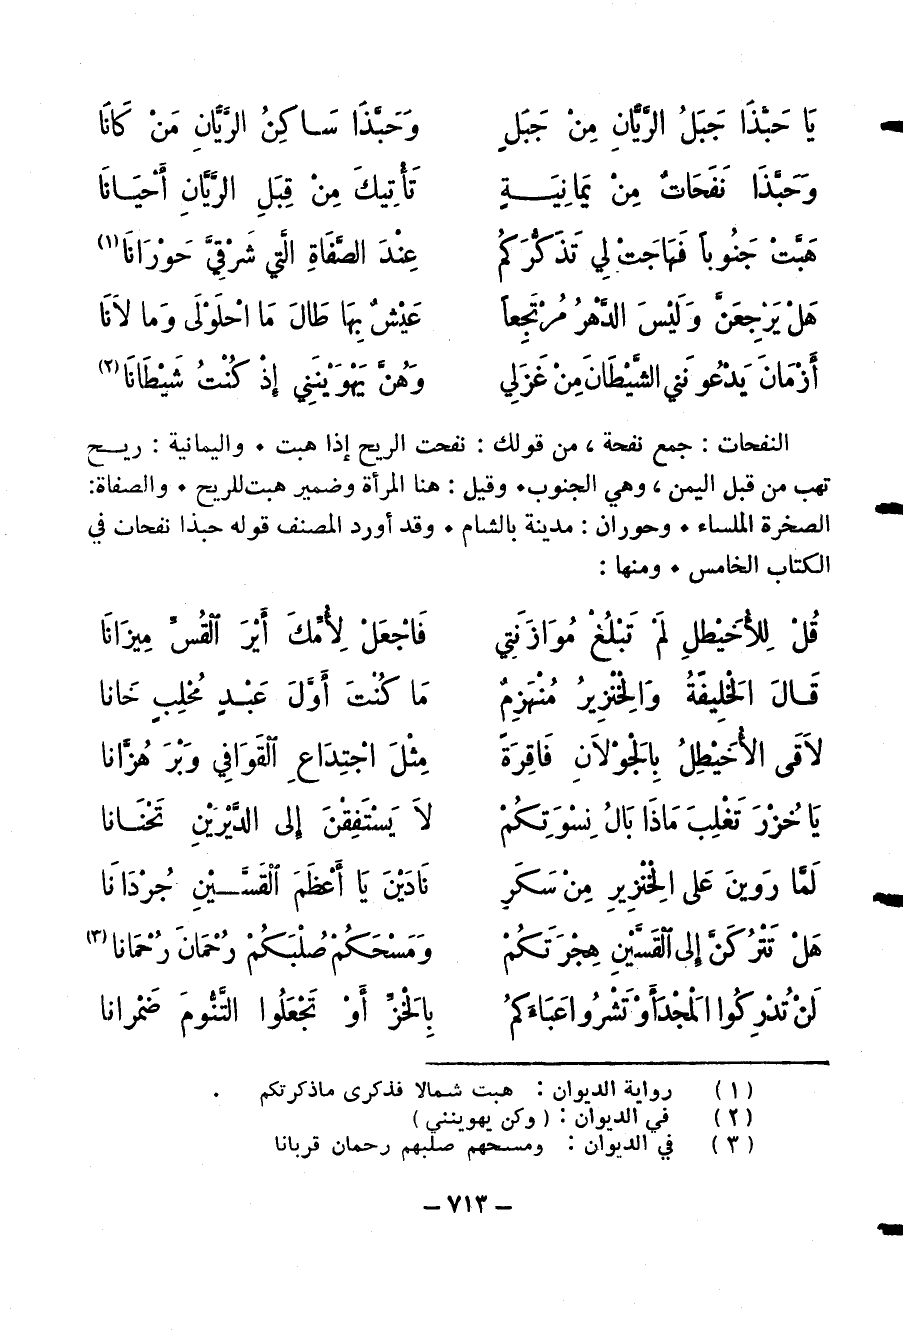 يَا حَبَّذَا جَبَلُ الرَّيَّانِ مِنْ جَبَلٍ وَحَبَّذَا سَاكِنُ الرَّيَّانِ مَنْ كَانَا
وَحَبَّذَا نَفَحَاتٌ مِنْ يَمَانِيَةٍ تَأْتِيكَ مِنْ قِبَلِ الرَّيَّانِ أَحْيَانَا
هَبَّتْ جَنُوباً فَهَاجَتْ لِي تَذَكُّرَكُمْ عِنْدَ الصَّفَاةِ الَّتِي شَرْقِيَّ حَوْرَانَا (١)
هَلْ يَرْجِعَنَّ وَلَيْسَ الدَّهْرُ مُرْتَجِعاً عَيْشٌ بِهَا طَالَ مَا احْلَوْلَى وَما لاَنَا
أَزْمَانَ يَدْعُونَنِي الشَّيْطَانَ مِنْ غَزَلِي وَهُنَّ يَهْوَيْنَنِي إِذْ كُنْتُ شَيْطَانَا (٢)
النفحات : جمع نفحة ، من قولك : نفحت الريح إذا هبت . واليمانية : ريح
تهب من قبل اليمن ، وهي الجنوب . وقيل : هنا المرأة وضمير هبت للريح . والصفاة :
الصخرة الملساء . وحوران : مدينة بالشام . وقد أورد المصنف قوله حبذا نفحات في
الكتاب الخامس . ومنها :
قُلْ لِلأُخَيْطِلِ لَمْ تَبْلُغْ مُوَازَنَتِي فَاجْعَلْ لِأُمِّكَ أَيْرَ القُسِّ مِيزَانَا
قَالَ الخَلِيفَةُ وَالخِنْزِيرُ مُنْهَزِمٌ مَا كُنْتَ أَوَّلَ عَبْدٍ مُحْلِبٍ خَانا
لاَقَى الأُخَيْطِلُ بِالجَوْلاَنِ فَاقِرَةً مِثْلَ اجْتِدَاعِ القَوَافِي وَبْرَ هُزَّانا
يَا خُزْرَ تَغْلِبَ مَاذَا بَالُ نِسْوَتِكُمْ لاَ يَسْتَفِقْنَ إِلى الدَّيْرَيْنِ تَحْنَانا
لَمَّا رَوِينَ عَلى الخِنْزِيرِ مِنْ سَكَرٍ نَادَيْنَ يَا أَعْظَمَ القَسَّيْنِ جُرْدَانَا
هَلْ تَتْرُكَنَّ إِلى القَسَّيْنِ هِجْرَتَكُمْ وَمَسْحَكُمْ صُلْبَكُمْ رُحْمَانَ رُحْمَانا (٣)
لَنْ تُدْرِكُوا المَجْدَ أَوْ تَشْرُوا عَبَاءَكُمُ بِالخَزِّ أَوْ تَجْعَلُوا التَّنُّومَ ضَمْرانا
(١) رواية الديوان : هبت شمالا فذكرى ماذكرتكم .
(٢) في الديوان : (وكن يهوينني)
(٣) في الديوان : ومسحهم صلبهم رحمان قربانا
- ٧١٣ -